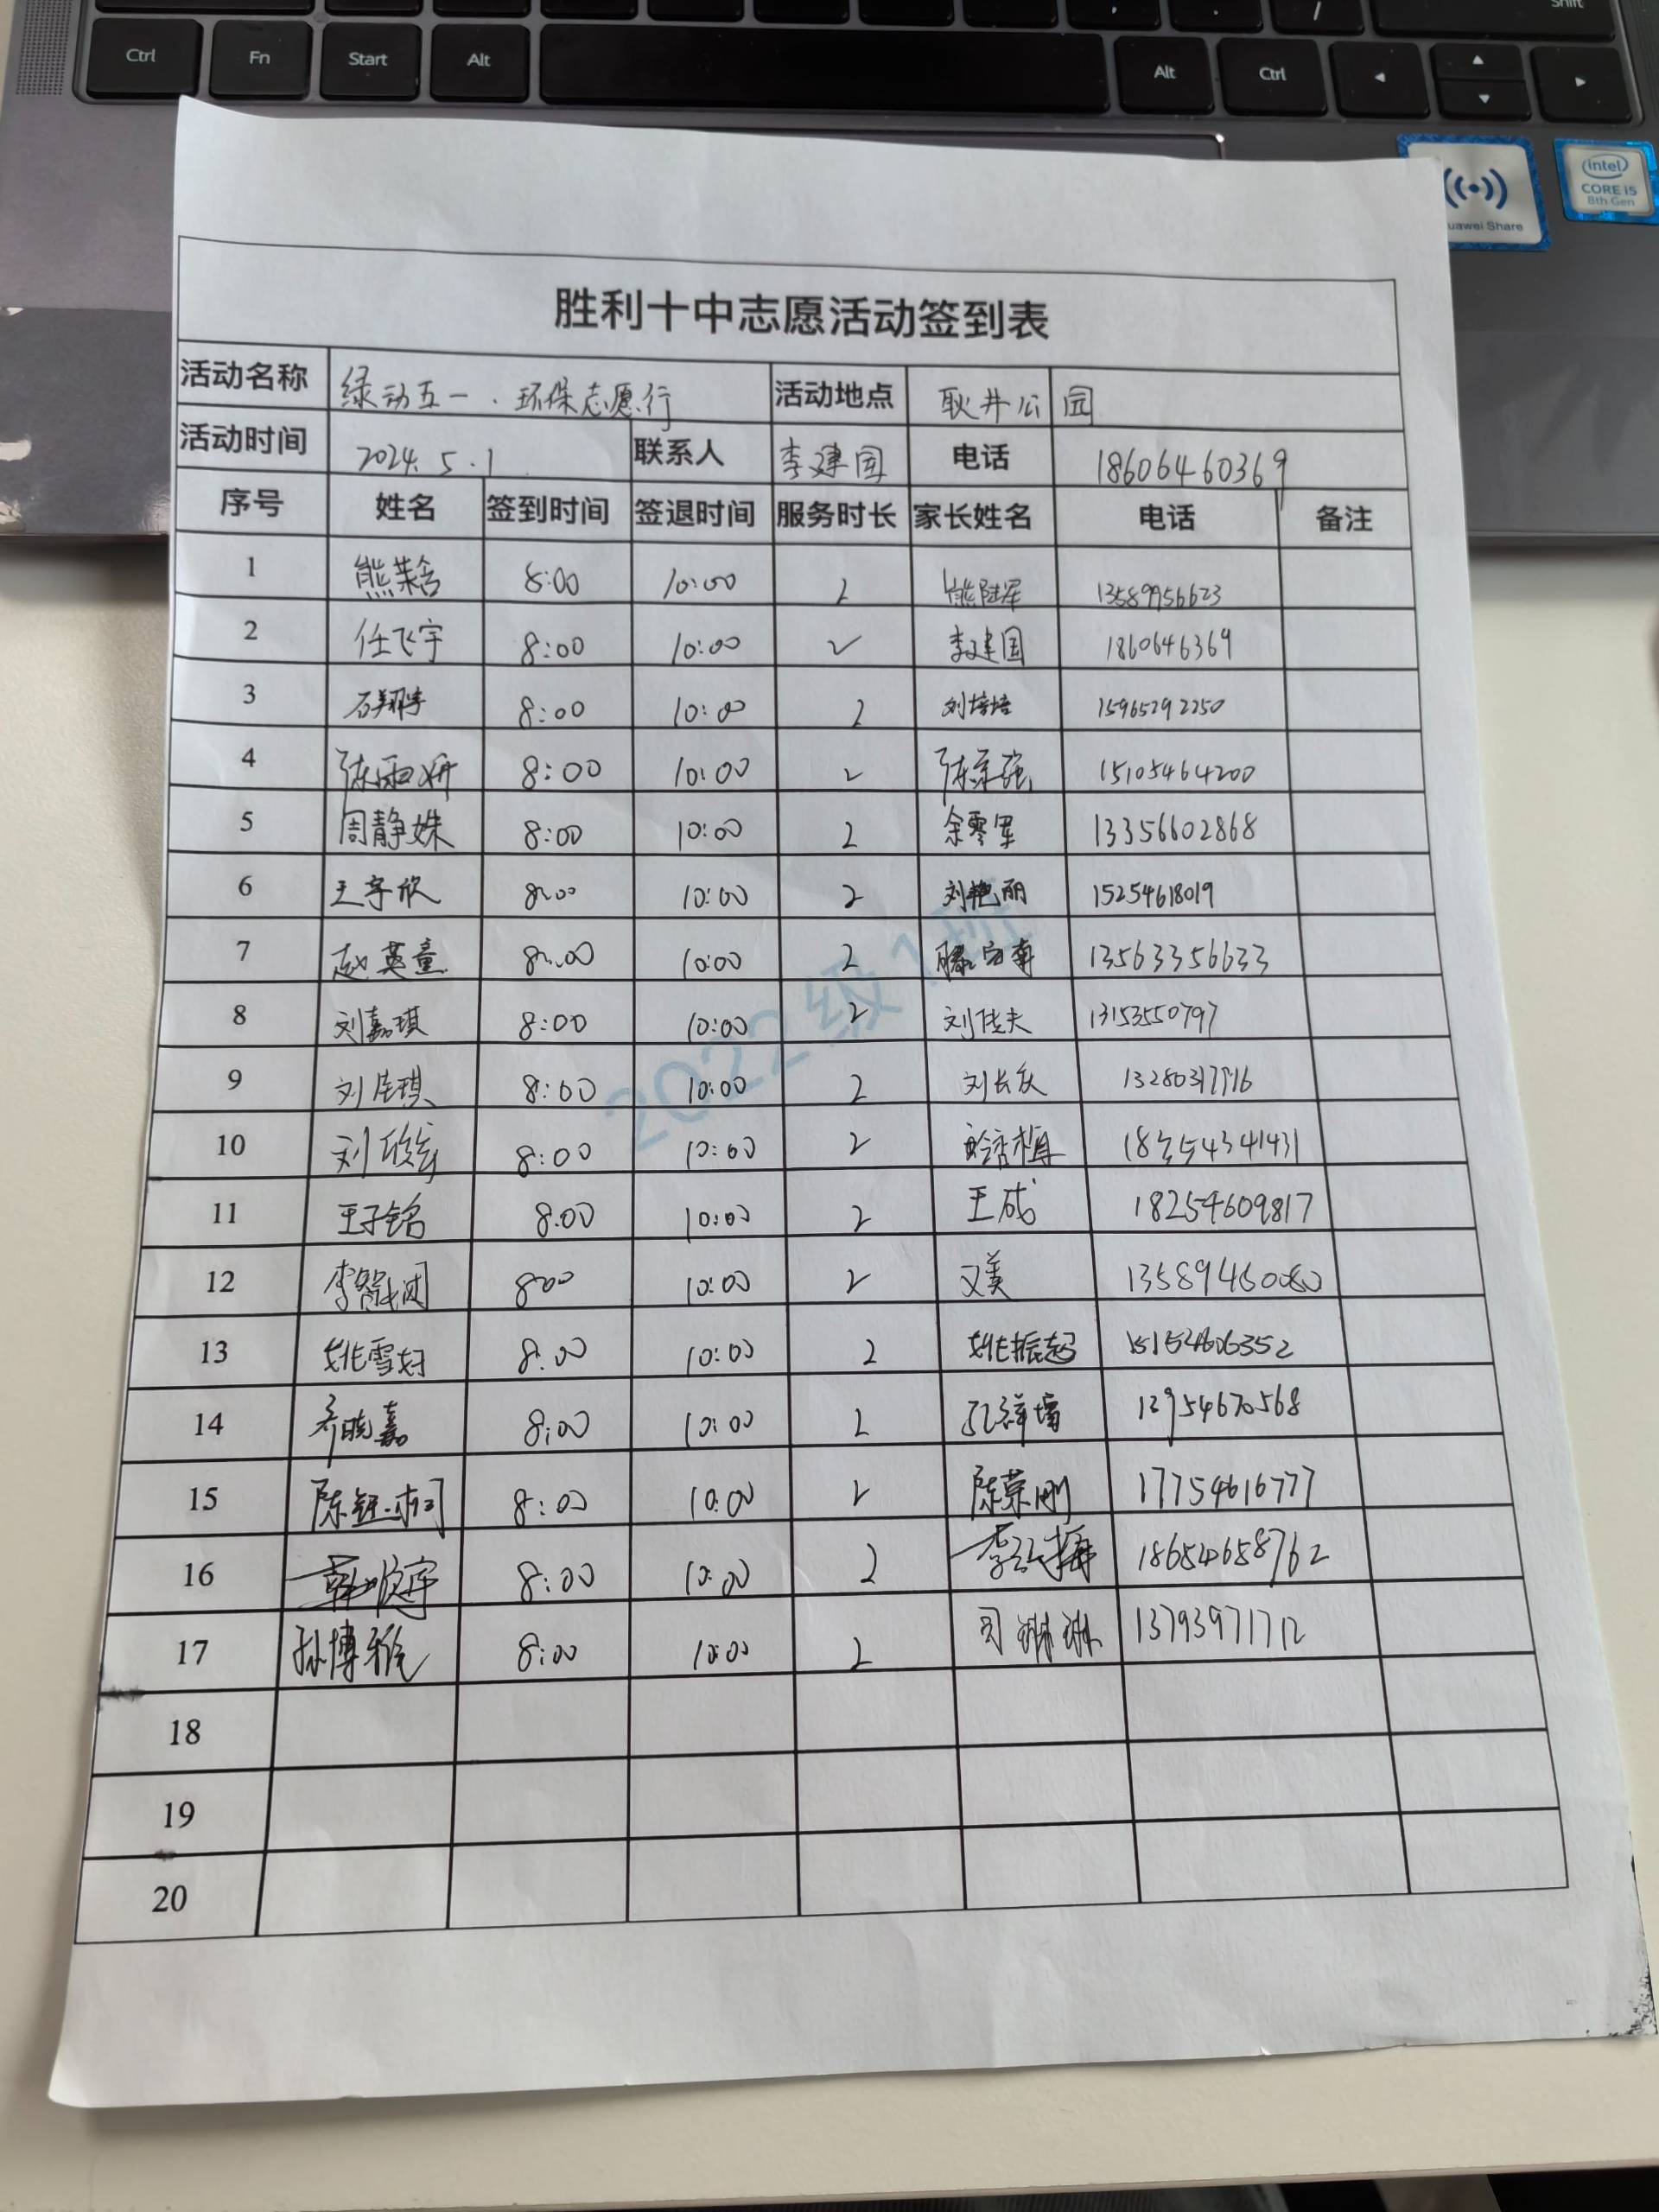 Shift
Ctrl Fn Start Alt Alt Ctrl
intel
CORE i5
8th Gen
uawei Share
胜利十中志愿活动签到表
活动名称 绿动五一.环保志愿行 活动地点 耿井公园
活动时间 2024.5.1 联系人 李建国 电话 18606460369
序号 姓名 签到时间 签退时间 服务时长 家长姓名 电话 备注
1 8:00 10:00 2 熊陆军 13589956623
2 任飞宇 8:00 10:00 2 李建国 1860646369
3 8:00 10:00 2 刘培培 15965292250
4 陈雨妍 8:00 10:00 2 15105464200
5 周静姝 8:00 10:00 2 13356602868
6 王宇欣 8:00 10:00 2 刘艳丽 15254618019
7 赵英童 8:00 10:00 2 13563356633
8 刘嘉琪 8:00 10:00 2 13153550797
9 刘佳琪 8:00 10:00 2
10 8:00 10:00 2 18354341431
11 王子铭 8:00 10:00 2 王成 18254609817
12 8:00 10:00 2 13589460080
13 姚雪妤 8:00 10:00 2 姚振起
14 乔晓嘉 8:00 10:00 2
15 8:00 10:00 2 陈荣刚 17754616777
16 8:00 10:00 2 18654658762
17 孙博雅 8:00 10:00 2 司琳琳 13793971712
18
19
20
2022级1班